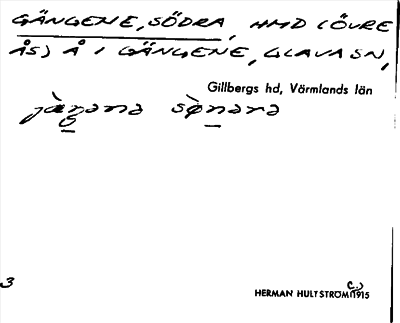 GÄNGENE, SÖDRA, HMD (ÖVRE
ÅS) Å I GÄNGENE, GLAVA SN,
Gillbergs hd, Värmlands län
3
HERMAN HULTSTRÖM (C.) 1915